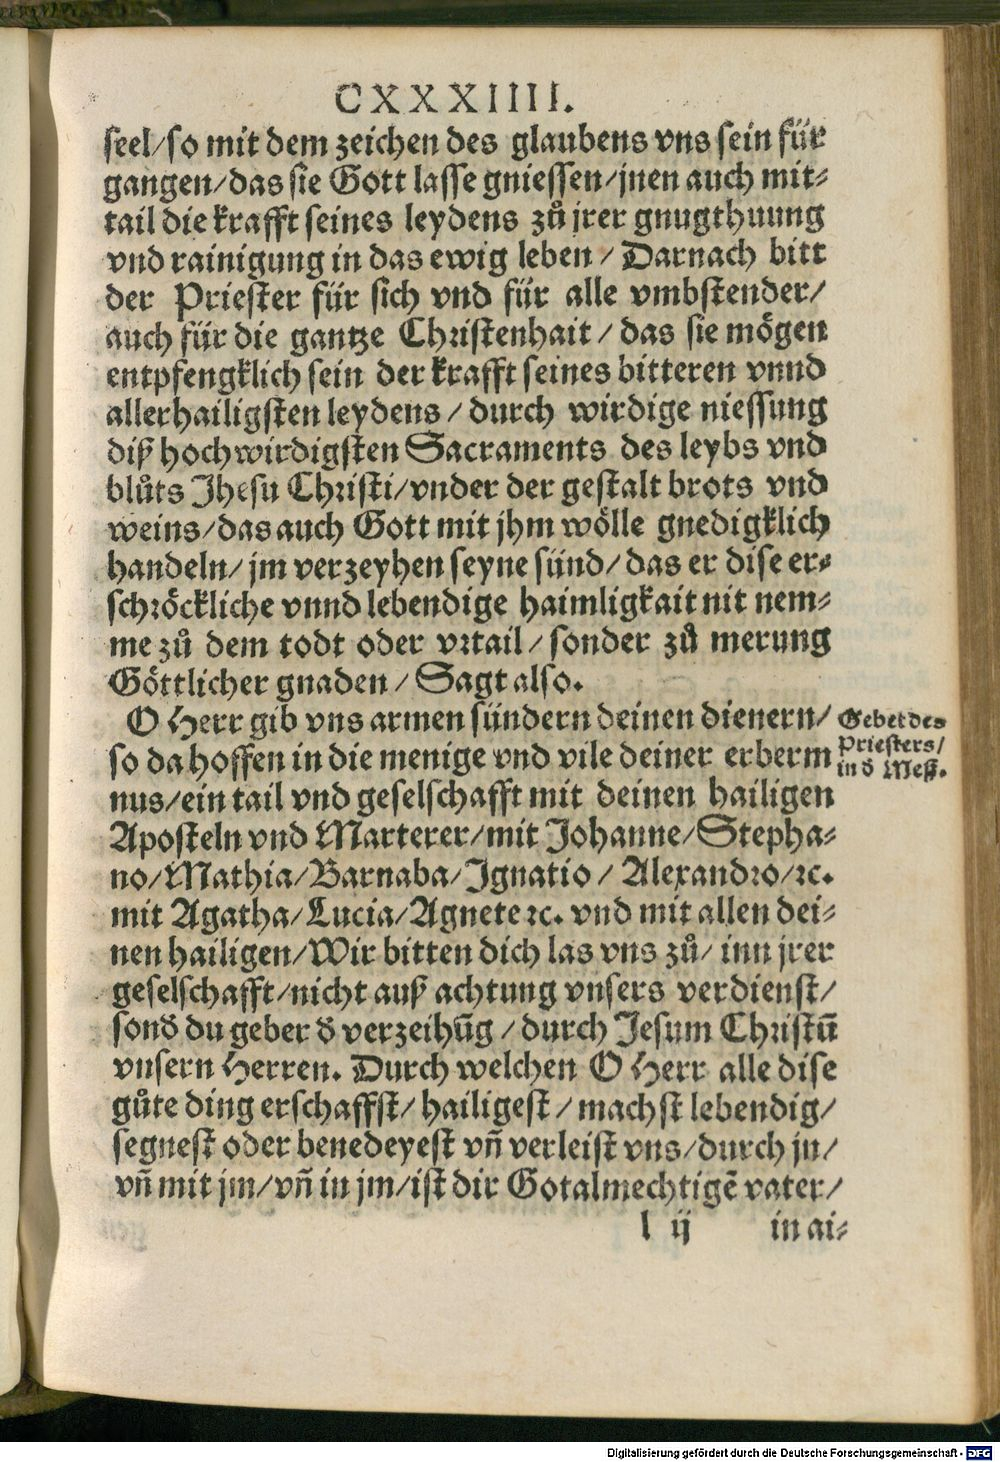 CXXXIIII.
seel/so mit dem zeichen des glaubens vns sein für
gangen/das sie Gott lasse gniessen/jnen auch mit⸗
tail die krafft seines leydens zuͦ jrer gnugthuung
vnd rainigung in das ewig leben/ Darnach bitt
der Priester für sich vnd für alle vmbstender/
auch für die gantze Christenhait/ das sie mögen
entpfengklich sein der krafft seines bitteren vnnd
allerhailigsten leydens/ durch wirdige niessung
diß hochwirdigsten Sacraments des leybs vnd
bluͦts Jhesu Christi/vnder der gestalt brots vnd
weins/das auch Gott mit jhm wölle gnedigklich
handeln/jm verzeyhen seyne sünd/das er dise er⸗
schröckliche vnnd lebendige haimligkait nit nem⸗
me zuͦ dem todt oder vrtail/sonder zuͦ merung
Göttlicher gnaden/ Sagt also.
O Herr gib vns armen sündern deinen dienern/
so da hoffen in die menige vnd vile deiner erberm
nus/ein tail vnd geselschafft mit deinen hailigen
Aposteln vnd Marterer/mit Johanne/Stepha⸗
no/Mathia/Barnaba/Ignatio/ Alexandro/ꝛc.
mit Agatha/Lucia/Agnete ꝛc. vnd mit allen dei⸗
nen hailigen/Wir bitten dich las vns zuͦ/ inn jrer
geselschafft/nicht auß achtung vnsers verdienst/
sond̕ du geber d̕ verzeihūg/durch Jesum Christū
vnsern Herren. Durch welchen O Herr alle dise
guͦte ding erschaffst/hailigest/machst lebendig/
segnest oder benedeyest vñ verleist vns/durch jn/
vñ mit jm/vñ in jm/ist dir Gotalmechtigē vater/
l ij in ai⸗
Gebet des
Priesters/
in d̕ Meß.
Digitalisierung gefördert durch die Deutsche Forschungsgemeinschaft - DFG